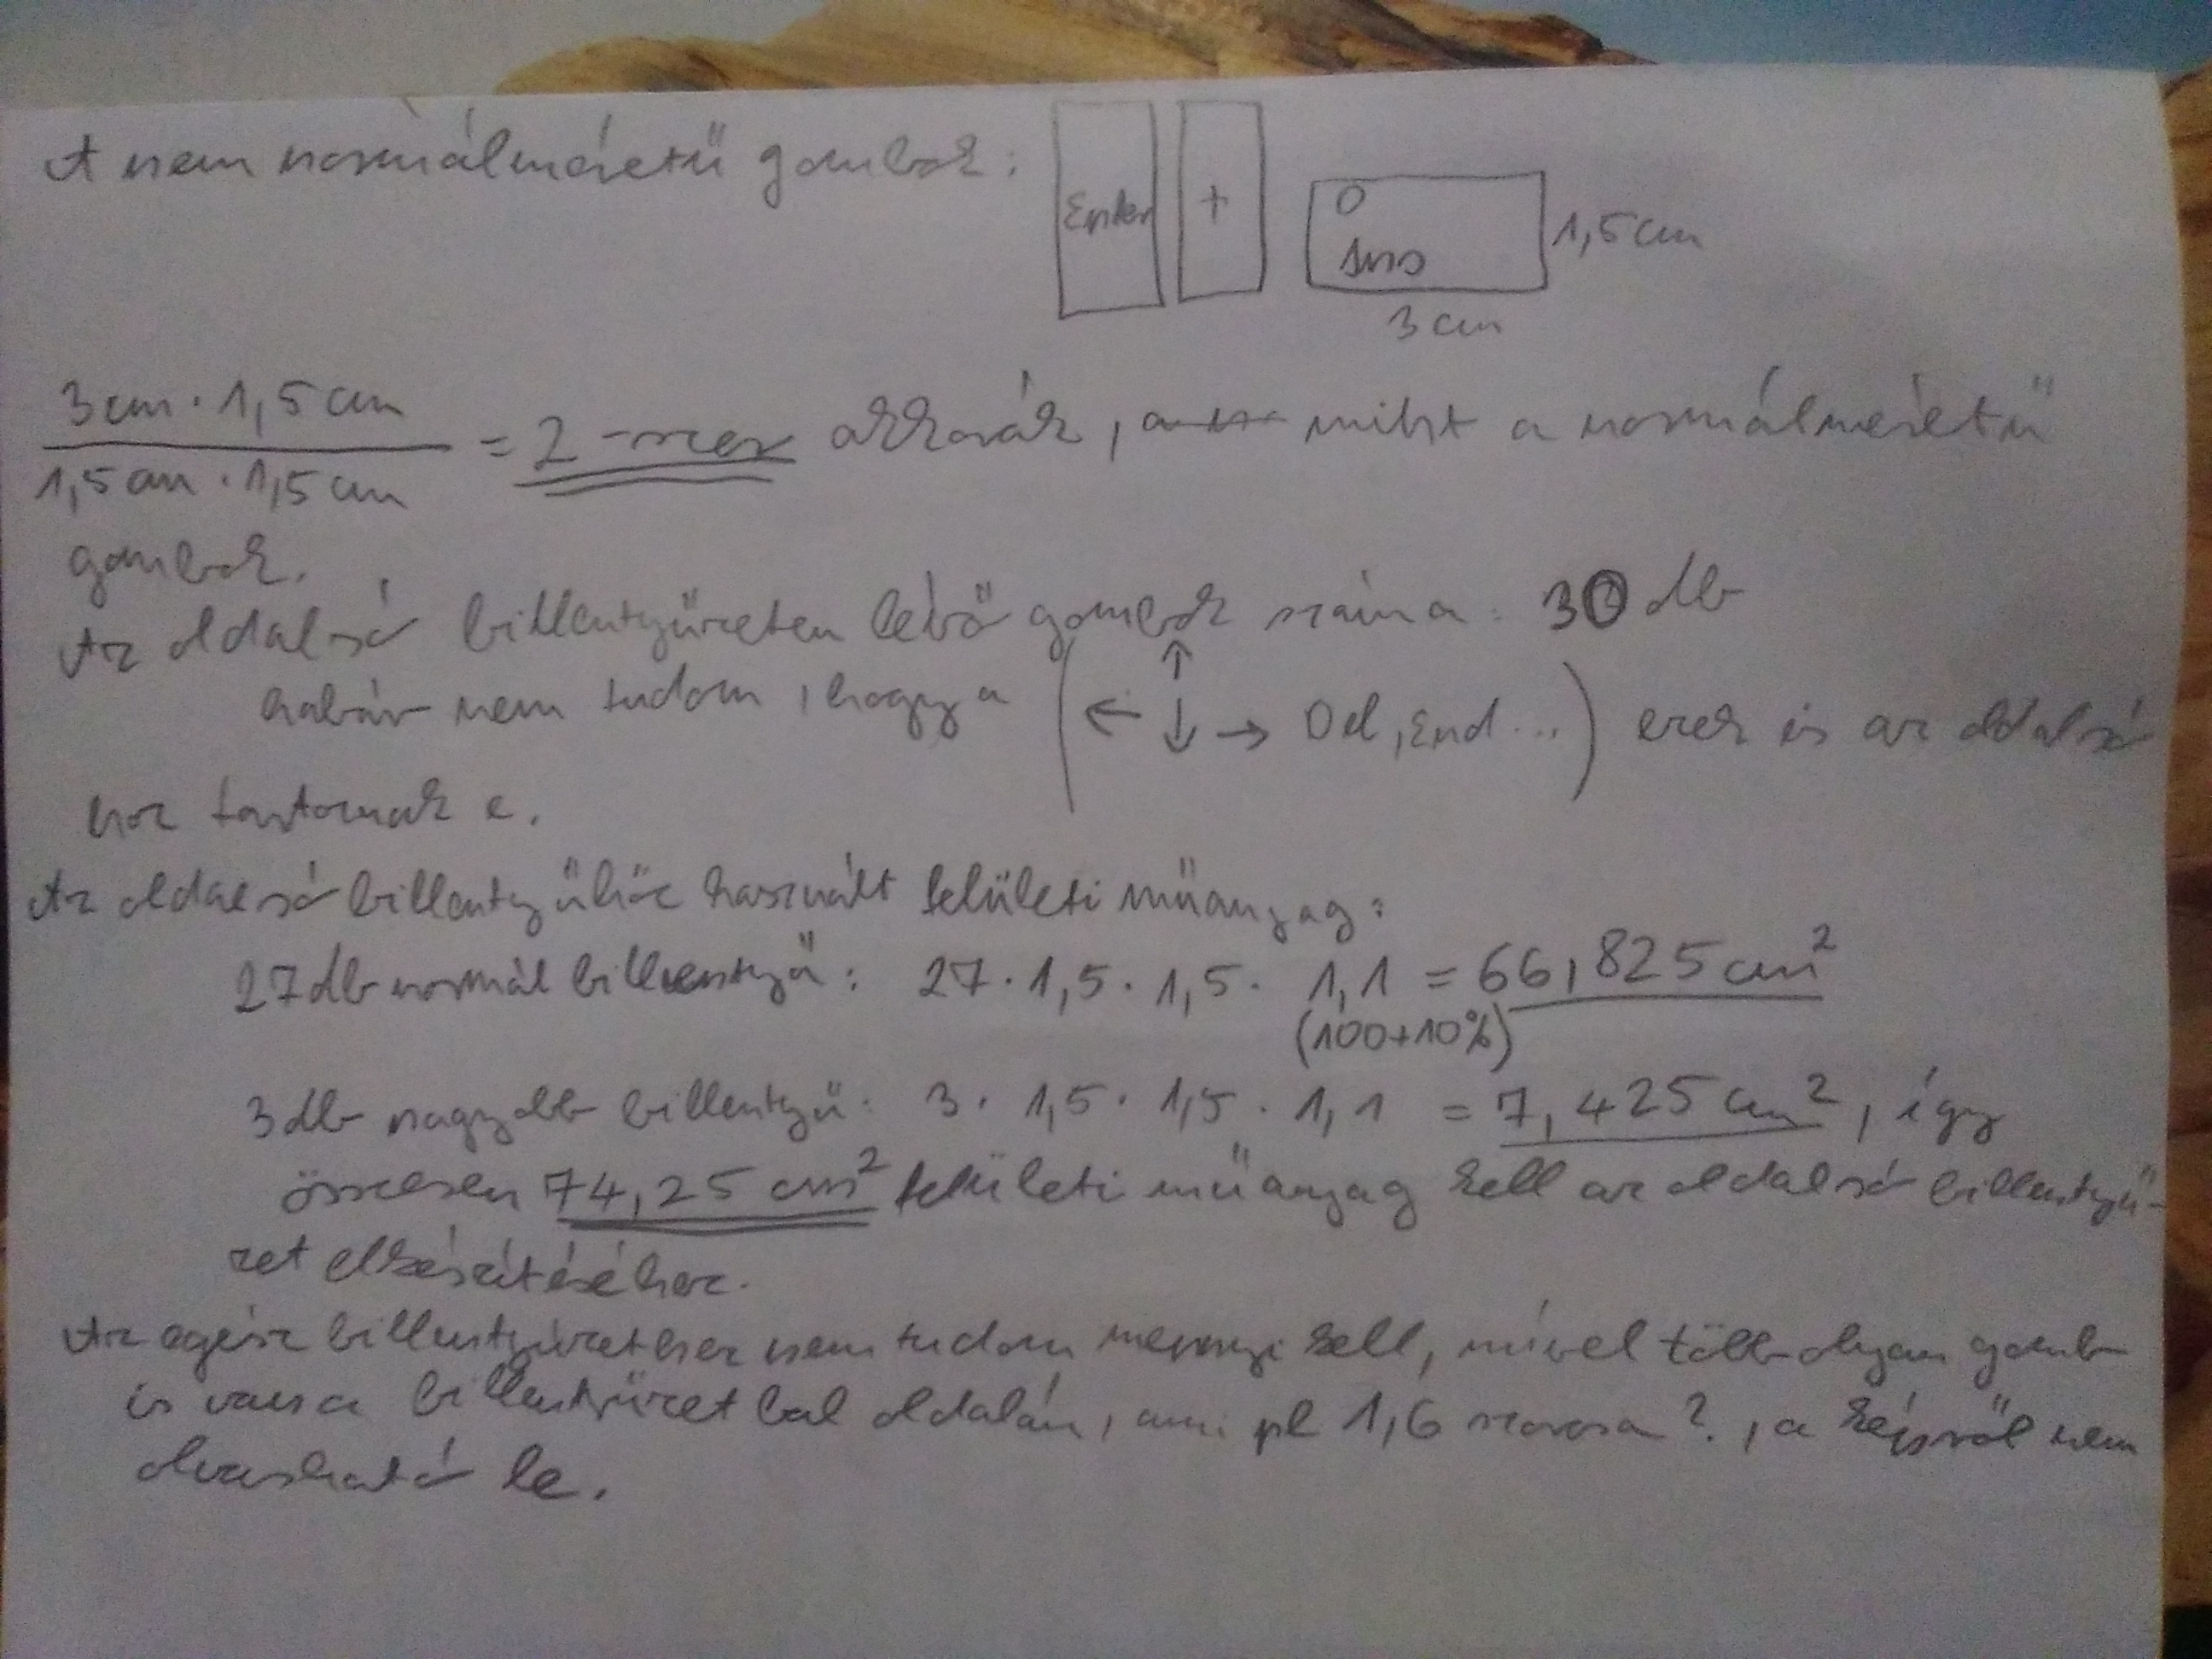 A nem normálméretű gombok:
Enter
+
0
Ins
1,5 cm
3 cm
3cm · 1,5 cm
1,5 cm · 1,5 cm
= 2-szer akkorák, mint a normálméretű
gombok.
Az oldalsó billentyűzeten lévő gombok száma: 30 db
habár nem tudom, hogy a (← ↑ ↓ → Del, End...) ezek is az oldalsó
hoz tartoznak e.
Az oldalsó billentyűhöz használt felületi műanyag:
27 db normál billentyű: 27 · 1,5 · 1,5 · 1,1 = 66,825 cm²
(100+10%)
3 db nagyobb billentyű: 3 · 1,5 · 1,5 · 1,1 = 7,425 cm², így
összesen 74,25 cm² felületi műanyag kell az oldalsó billentyű-
zet elkészítéséhez.
Az egész billentyűzethez nem tudom mennyi kell, mivel több olyan gomb
is van a billentyűzet bal oldalán, ami pl 1,6 szorosa?, a képről nem
olvasható le.